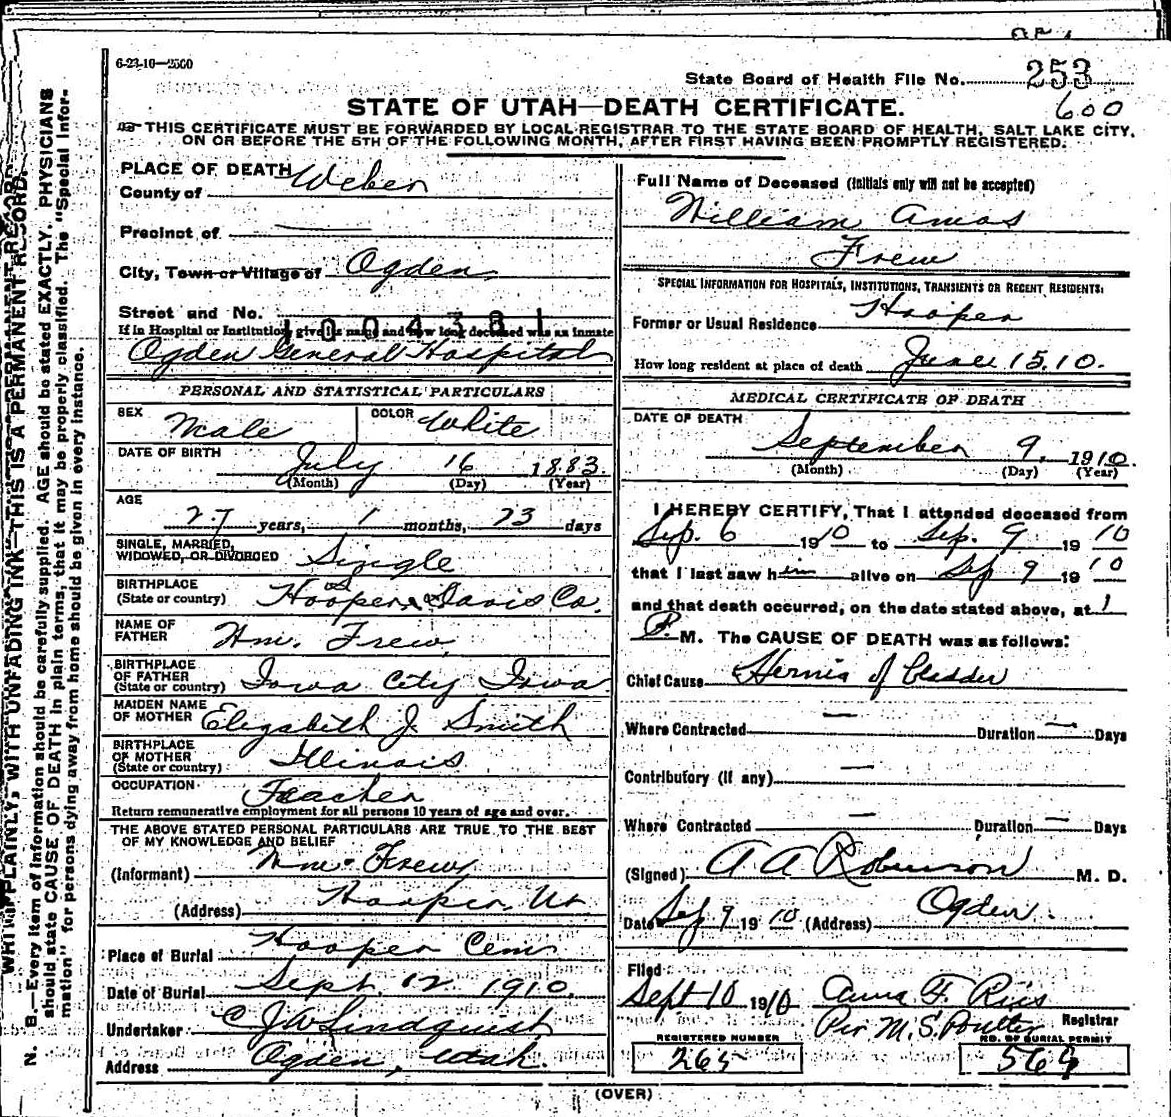 6-23-10—2500
State Board of Health File No. 253
600
STATE OF UTAH—DEATH CERTIFICATE.
THIS CERTIFICATE MUST BE FORWARDED BY LOCAL REGISTRAR TO THE STATE BOARD OF HEALTH, SALT LAKE CITY,
ON OR BEFORE THE 5TH OF THE FOLLOWING MONTH, AFTER FIRST HAVING BEEN PROMPTLY REGISTERED.
PLACE OF DEATH
County of Weber
Precinct of —
City, Town or Village of Ogden
Street and No.
1004381
If in Hospital or Institution, give its name and how long deceased was an inmate
Ogden General Hospital
PERSONAL AND STATISTICAL PARTICULARS
SEX Male COLOR White
DATE OF BIRTH July 16 1883
(Month) (Day) (Year)
AGE
27 years, 1 months, 23 days
SINGLE, MARRIED,
WIDOWED, OR DIVORCED Single
BIRTHPLACE
(State or country) Hooper, Davis Co.
NAME OF
FATHER Wm. Frew
BIRTHPLACE
OF FATHER
(State or country) Iowa City Iowa
MAIDEN NAME
OF MOTHER Elizabeth J. Smith
BIRTHPLACE
OF MOTHER
(State or country) Illinois
OCCUPATION Teacher
Return remunerative employment for all persons 10 years of age and over.
THE ABOVE STATED PERSONAL PARTICULARS ARE TRUE TO THE BEST
OF MY KNOWLEDGE AND BELIEF
(Informant) Wm. Frew
(Address) Hooper Ut
Place of Burial Hooper Cem
Date of Burial Sept. 12 1910
Undertaker C J W Lindquist
Address Ogden, Utah.
Full Name of Deceased (Initials only will not be accepted)
William Amos
Frew
SPECIAL INFORMATION FOR HOSPITALS, INSTITUTIONS, TRANSIENTS OR RECENT RESIDENTS:
Former or Usual Residence Hooper
How long resident at place of death June 15.10.
MEDICAL CERTIFICATE OF DEATH
DATE OF DEATH
September 9, 1910
(Month) (Day) (Year)
I HEREBY CERTIFY, That I attended deceased from
Sep. 6 1910 to Sep. 9 1910
that I last saw him alive on Sep 9 1910
and that death occurred, on the date stated above, at 1
P. M. The CAUSE OF DEATH was as follows:
Chief Cause Hernia of bladder
Where Contracted — Duration — Days
Contributory (if any) —
Where Contracted — Duration — Days
(Signed) A A Robinson M. D.
Date Sep 9 1910 (Address) Ogden.
Filed
Sept 10 1910 Anna F. Ries
Per M. S. Poulter Registrar
REGISTERED NUMBER
265
NO. OF BURIAL PERMIT
564
(OVER)
WRITE PLAINLY, WITH UNFADING INK—THIS IS A PERMANENT RECORD.
N. B.—Every item of information should be carefully supplied. AGE should be stated EXACTLY. PHYSICIANS
should state CAUSE OF DEATH in plain terms, that it may be properly classified. The "Special Infor-
mation" for persons dying away from home should be given in every instance.